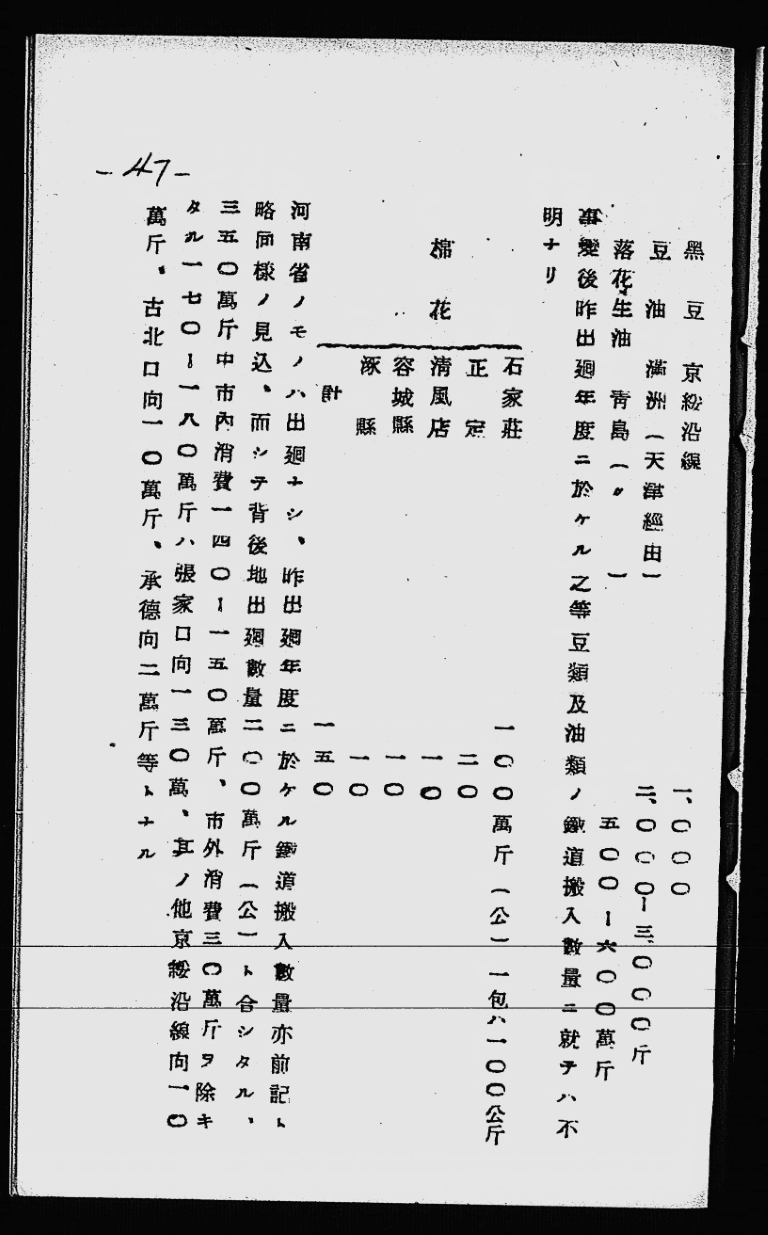 黑豆 京綏沿線 一、〇〇〇
豆油 滿洲(天津經由) 二、〇〇〇ー三、〇〇〇斤
落花生油 青島(〃) 五〇〇ー六〇〇萬斤
事變後昨出廻年度ニ於ケル之等豆類及油類ノ鐵道搬入數量ニ就テハ不
明ナリ
棉花
石家莊 一〇〇萬斤(公)一包ハ一〇〇公斤
正定 二〇
清風店 一〇
容城縣 一〇
涿縣 一〇
計 一五〇
河南省ノモノハ出廻ナシ、昨出廻年度ニ於ケル鐵道搬入數量亦前記ト
略同樣ノ見込、而シテ背後地出廻數量二〇〇萬斤(公)ト合シタル、
三五〇萬斤中市內消費一四〇ー一五〇萬斤、市外消費三〇萬斤ヲ除キ
タル一七〇ー一八〇萬斤ハ張家口向一三〇萬、其ノ他京綏沿線向一〇
萬斤、古北口向一〇萬斤、承德向二萬斤等トナル
-47-